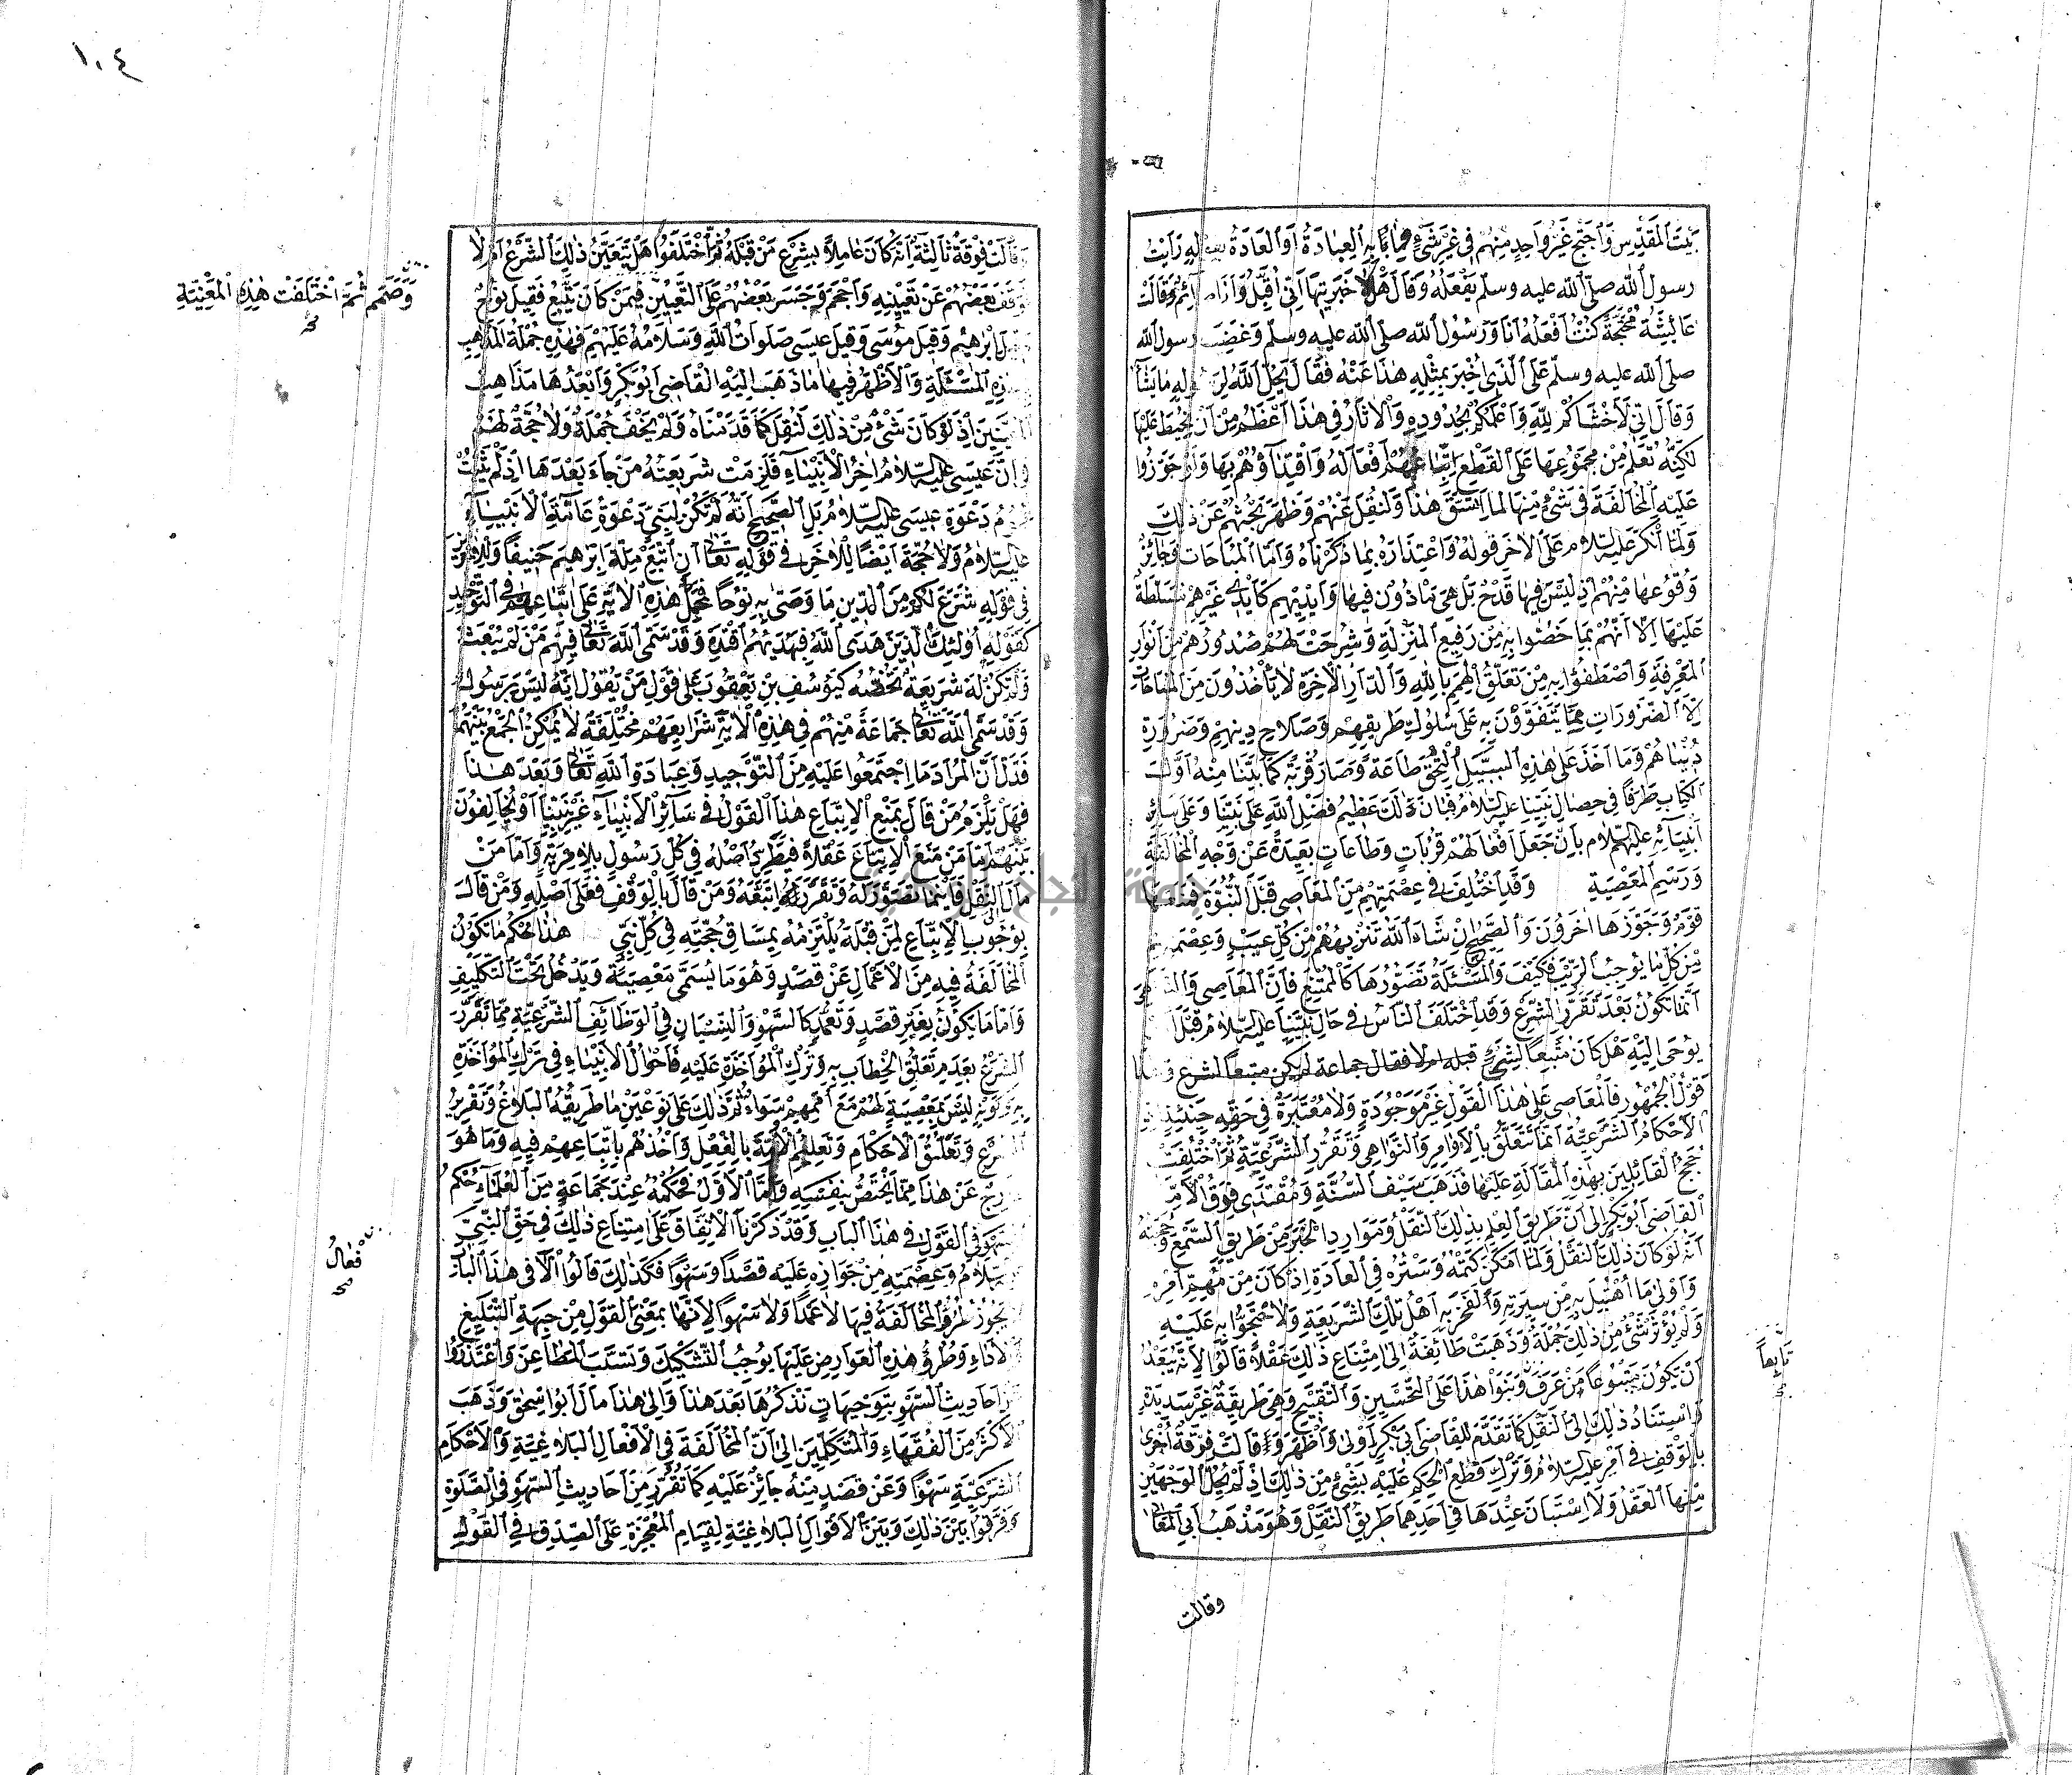 بَيْتَ المَقْدِسِ وَاحْتَجَّ غَيْرُ وَاحِدٍ مِنْهُمْ فِي غَيْرِ شَيْءٍ مِمَّا بَابُهُ العِبَادَةُ أَوِ العَادَةُ بِقَوْلِهِ رَأَيْتُ
رسول الله صلى الله عليه وسلم يَفْعَلُهُ وَقَالَ هَلَّا خَبَّرْتِيهَا أَنِّي أُقَبِّلُ وَأَنَا صَائِمٌ وَقَالَتْ
عَائِشَةُ مُحْتَجَّةً كُنْتُ أَفْعَلُهُ أَنَا وَرَسُولُ الله صلى الله عليه وسلم وَغَضِبَ رسول الله
صلى الله عليه وسلم عَلَى الَّذِي أُخْبِرَ بِمِثْلِهِ هَذَا عَنْهُ فَقَالَ يُحِلُّ اللهُ لِرَسُولِهِ مَا يَشَاءُ
وَقَالَ إِنِّي لَأَخْشَاكُمْ لِلَّهِ وَأَعْلَمُكُمْ بِحُدُودِهِ وَالآثَارُ فِي هَذَا أَعْظَمُ مِنْ أَنْ يُحِيطَ عَلَيْهَا
لَكِنَّهُ يُعْلَمُ مِنْ مَجْمُوعِهَا عَلَى القَطْعِ اتِّبَاعُهُمْ أَفْعَالَهُ وَاقْتِدَاؤُهُمْ بِهَا وَلَوْ جَوَّزُوا
عَلَيْهِ المُخَالَفَةَ فِي شَيْءٍ مِنْهَا لَمَا اتَّسَقَ هَذَا وَلَنُقِلَ عَنْهُمْ وَظَهَرَ بَحْثُهُمْ عَنْ ذَلِكَ
وَلَمَا أَنْكَرَ عليه السلام عَلَى الآخَرِ قَوْلَهُ وَاعْتِذَارَهُ بِمَا ذَكَرْنَاهُ وَأَمَّا المُبَاحَاتُ فَجَائِزٌ
وُقُوعُهَا مِنْهُمْ إِذْ لَيْسَ فِيهَا قَدْحٌ بَلْ هِيَ مَأْذُونٌ فِيهَا وَأَيْدِيهِمْ كَأَيْدِي غَيْرِهِمْ مُسَلَّطَةٌ
عَلَيْهَا إِلَّا أَنَّهُمْ بِمَا خُصُّوا بِهِ مِنْ رَفِيعِ المَنْزِلَةِ وَشُرِحَتْ لَهُمْ صُدُورُهُمْ مِنْ أَنْوَارِ
المَعْرِفَةِ وَاصْطُفُوا بِهِ مِنْ تَعَلُّقِ الهِمَمِ بِاللهِ وَالدَّارِ الآخِرَةِ لَا يَأْخُذُونَ مِنَ المُبَاحَاتِ
إِلَّا الضَّرُورَاتِ مِمَّا يَتَقَوَّوْنَ بِهِ عَلَى سُلُوكِ طَرِيقِهِمْ وَصَلَاحِ دِينِهِمْ وَضَرُورَةِ
دُنْيَاهُمْ وَمَا أُخِذَ عَلَى هَذِهِ السَّبِيلِ الْتَحَقَ طَاعَةً وَصَارَ قُرْبَةً كَمَا بَيَّنَّا مِنْهُ أَوَّلَ
الكِتَابِ طَرَفًا فِي خِصَالِ نَبِيِّنَا عليه السلام فَبَانَ لَكَ عَظِيمُ فَضْلِ اللهِ عَلَى نَبِيِّنَا وَعَلَى سَائِرِ
أَنْبِيَائِهِ عليهم السلام بِأَنْ جَعَلَ أَفْعَالَهُمْ قُرُبَاتٍ وَطَاعَاتٍ بَعِيدَةً عَنْ وَجْهِ المُخَالَفَةِ
وَرَسْمِ المَعْصِيَةِ وَقَدِ اخْتُلِفَ فِي عِصْمَتِهِمْ مِنَ المَعَاصِي قَبْلَ النُّبُوَّةِ فَمَنَعَهَا
قَوْمٌ وَجَوَّزَهَا آخَرُونَ وَالصَّحِيحُ إِنْ شَاءَ اللهُ تَنْزِيهُهُمْ مِنْ كُلِّ عَيْبٍ وَعِصْمَتُهُمْ
مِنْ كُلِّ مَا يُوجِبُ الرَّيْبَ فَكَيْفَ وَالمَسْئَلَةُ تَصَوُّرُهَا كَالمُمْتَنِعِ فَإِنَّ المَعَاصِيَ وَالنَّوَاهِيَ
إِنَّمَا تَكُونُ بَعْدَ تَقَرُّرِ الشَّرْعِ وَقَدِ اخْتَلَفَ النَّاسُ فِي حَالِ نَبِيِّنَا عليه السلام قَبْلَ أَنْ
يُوحَى إِلَيْهِ هَلْ كَانَ مُتَّبِعًا لِشَرْعٍ قبله ام لا فقال جماعة لم يكن متبعا لشرع وهذا
قَوْلُ الجُمْهُورِ فَالمَعَاصِي عَلَى هَذَا القَوْلِ غَيْرُ مَوْجُودَةٍ وَلَا مُعْتَبَرَةٍ فِي حَقِّهِ حِينَئِذٍ إِذِ
الأَحْكَامُ الشَّرْعِيَّةُ إِنَّمَا تَتَعَلَّقُ بِالأَوَامِرِ وَالنَّوَاهِي وَتَقَرُّرِ الشَّرِيعَةِ ثُمَّ اخْتَلَفَتْ
حُجَجُ القَائِلِينَ بِهَذِهِ المَقَالَةِ عَلَيْهَا فَذَهَبَ سَيْفُ السُّنَّةِ وَمُقْتَدَى فِرَقِ الأُمَّةِ
القَاضِي أَبُو بَكْرٍ إِلَى أَنَّ طَرِيقَ العِلْمِ بِذَلِكَ النَّقْلُ وَمَوَارِدُ الخَبَرِ مِنْ طَرِيقِ السَّمْعِ وَحُجَّتُهُ
أَنَّهُ لَوْ كَانَ ذَلِكَ لَنُقِلَ وَلَمَا أَمْكَنَ كَتْمُهُ وَسَتْرُهُ فِي العَادَةِ إِذْ كَانَ مِنْ مُهِمِّ أَمْرِهِ
وَأَوْلَى مَا اهْتُبِلَ بِهِ مِنْ سِيرَتِهِ وَلَفَخَرَ بِهِ أَهْلُ تِلْكَ الشَّرِيعَةِ وَلَاحْتَجُّوا بِهِ عَلَيْهِ
وَلَمْ يُؤْثَرْ شَيْءٌ مِنْ ذَلِكَ جُمْلَةً وَذَهَبَتْ طَائِفَةٌ إِلَى امْتِنَاعِ ذَلِكَ عَقْلًا قَالُوا لِأَنَّهُ يَبْعُدُ
أَنْ يَكُونَ مَتْبُوعًا مَنْ عُرِفَ وَبَنَوْا هَذَا عَلَى التَّحْسِينِ وَالتَّقْبِيحِ وَهِيَ طَرِيقَةٌ غَيْرُ سَدِيدَةٍ
تَابِعاً
وَاسْتِنَادُ ذَلِكَ إِلَى النَّقْلِ كَمَا تَقَدَّمَ لِلْقَاضِي أَبِي بَكْرٍ أَوْلَى وَأَظْهَرُ وَقَالَتْ فِرْقَةٌ أُخْرَى
بِالوَقْفِ فِي أَمْرِهِ عليه السلام وَتَرْكِ قَطْعِ الحُكْمِ عَلَيْهِ بِشَيْءٍ مِنْ ذَلِكَ إِذْ لَمْ يُحِلِ الوَجْهَيْنِ
مِنْهَا العَقْلُ وَلَا اسْتَبَانَ عِنْدَهَا فِي أَحَدِهِمَا طَرِيقُ النَّقْلِ وَهُوَ مَذْهَبُ أَبِي المَعَالِي
وقالت
١٠٤
وَقَالَتْ فِرْقَةٌ ثَالِثَةٌ إِنَّهُ كَانَ عَامِلًا بِشَرْعِ مَنْ قَبْلَهُ ثُمَّ اخْتَلَفُوا هَلْ يَتَعَيَّنُ ذَلِكَ الشَّرْعُ أَمْ لَا
فَوَقَفَ بَعْضُهُمْ عَنْ تَعْيِينِهِ وَأَحْجَمَ وَجَسَرَ بَعْضُهُمْ عَلَى التَّعْيِينِ فِيمَنْ كَانَ يَتَّبِعُ فَقِيلَ نُوحٌ
وَصَمَّم ثُمَّ اخْتَلَفَتْ هَذِهِ المُعَيِّنَةِ
صح
وَقِيلَ إِبْرَهِيمُ وَقِيلَ مُوسَى وَقِيلَ عِيسَى صَلَوَاتُ اللهِ وَسَلَامُهُ عَلَيْهِمْ فَهَذِهِ جُمْلَةُ المَذَاهِبِ
فِي هَذِهِ المَسْئَلَةِ وَالأَظْهَرُ فِيهَا مَا ذَهَبَ إِلَيْهِ القَاضِي أَبُو بَكْرٍ وَأَبْعَدُهَا مَذَاهِبُ
المُعَيِّنِينَ إِذْ لَوْ كَانَ شَيْءٌ مِنْ ذَلِكَ لَنُقِلَ كَمَا قَدَّمْنَاهُ وَلَمْ يَخْفَ جُمْلَةً وَلَا حُجَّةَ لَهُمْ
فِي أَنَّ عِيسَى عليه السلام آخِرُ الأَنْبِيَاءِ فَلَزِمَتْ شَرِيعَتُهُ مَنْ جَاءَ بَعْدَهَا إِذْ لَمْ يَثْبُتْ
عُمُومُ دَعْوَةِ عِيسَى عليه السلام بَلِ الصَّحِيحُ أَنَّهُ لَمْ تَكُنْ لِنَبِيٍّ دَعْوَةٌ عَامَّةٌ إِلَّا لِنَبِيِّنَا
عليه السلام وَلَا حُجَّةَ أَيْضًا لِلآخَرِ فِي قَوْلِهِ تَعَالَى أَنِ اتَّبِعْ مِلَّةَ إِبْرَهِيمَ حَنِيفًا وَلِلآخَرِينَ
فِي قَوْلِهِ شَرَعَ لَكُمْ مِنَ الدِّينِ مَا وَصَّى بِهِ نُوحًا فَمَحْمَلُ هَذِهِ الآيَةِ عَلَى اتِّبَاعِهِمْ فِي التَّوْحِيدِ
كَقَوْلِهِ أُولَئِكَ الَّذِينَ هَدَى اللهُ فَبِهُدَيهُمُ اقْتَدِهْ وَقَدْ سَمَّى اللهُ تَعَالَى فِيهِمْ مَنْ لَمْ يُبْعَثْ
وَلَمْ تَكُنْ لَهُ شَرِيعَةٌ تَخُصُّهُ كَيُوسُفَ بْنِ يَعْقُوبَ عَلَى قَوْلِ مَنْ يَقُولُ إِنَّهُ لَيْسَ بِرَسُولٍ
وَقَدْ سَمَّى اللهُ تَعَالَى جَمَاعَةً مِنْهُمْ فِي هَذِهِ الآيَةِ شَرَايِعُهُمْ مُخْتَلِفَةٌ لَا يُمْكِنُ الجَمْعُ بَيْنَهُمْ
فَدَلَّ أَنَّ المُرَادَ مَا اجْتَمَعُوا عَلَيْهِ مِنَ التَّوْحِيدِ وَعِبَادَةِ اللهِ تَعَالَى وَبَعْدَ هَذَا
فَهَلْ يَلْزَمُ مَنْ قَالَ بِمَنْعِ الاِتِّبَاعِ هَذَا القَوْلُ فِي سَائِرِ الأَنْبِيَاءِ غَيْرِ نَبِيِّنَا أَوْ يُخَالِفُونَ
بَيْنَهُمْ أَمَّا مَنْ مَنَعَ الاِتِّبَاعَ عَقْلًا فَيَطَّرِدُ أَصْلُهُ فِي كُلِّ رَسُولٍ بِلَا مِرْيَةٍ وَأَمَّا مَنْ
مَالَ إِلَى النَّقْلِ فَأَيْنَمَا تُصُوِّرَ لَهُ وَتَقَرَّرَ اتَّبَعَهُ وَمَنْ قَالَ بِالوَقْفِ فَعَلَى أَصْلِهِ وَمَنْ قَالَ
بِوُجُوبِ الاِتِّبَاعِ لِمَنْ قَبْلَهُ يَلْتَزِمُهُ بِمَسَاقِ حُجَّتِهِ فِي كُلِّ نَبِيٍّ هَذَا حُكْمُ مَا تَكُونُ
المُخَالَفَةُ فِيهِ مِنَ الأَعْمَالِ عَنْ قَصْدٍ وَهُوَ مَا يُسَمَّى مَعْصِيَةً وَيَدْخُلُ تَحْتَ التَّكْلِيفِ
وَأَمَّا مَا يَكُونُ بِغَيْرِ قَصْدٍ وَتَعَمُّدٍ كَالسَّهْوِ وَالنِّسْيَانِ فِي الوَظَائِفِ الشَّرْعِيَّةِ مِمَّا تَقَرَّرَ
الشَّرْعُ بِعَدَمِ تَعَلُّقِ الخِطَابِ بِهِ وَتَرْكِ المُؤَاخَذَةِ عَلَيْهِ فَأَحْوَالُ الأَنْبِيَاءِ فِي تَرْكِ المُؤَاخَذَةِ
بِهِ وَكَوْنِهِ لَيْسَ بِمَعْصِيَةٍ لَهُمْ مَعَ أُمَمِهِمْ سَوَاءٌ ثُمَّ ذَلِكَ عَلَى نَوْعَيْنِ مَا طَرِيقُهُ البَلَاغُ وَتَقْرِيرُ
الشَّرْعِ وَتَعَلُّقُ الأَحْكَامِ وَتَعْلِيمُ الأُمَّةِ بِالفِعْلِ وَأَخْذُهُمْ بِاتِّبَاعِهِمْ فِيهِ وَمَا هُوَ
خَارِجٌ عَنْ هَذَا مِمَّا يَخْتَصُّ بِنَفْسِهِ وَأَمَّا الأَوَّلُ فَحُكْمُهُ عِنْدَ جَمَاعَةٍ مِنَ العُلَمَاءِ حُكْمُ
السَّهْوِ فِي القَوْلِ فِي هَذَا البَابِ وَقَدْ ذَكَرْنَا الاِتِّفَاقَ عَلَى امْتِنَاعِ ذَلِكَ فِي حَقِّ النَّبِيِّ
عليه السَّلَامُ وَعِصْمَتِهِ مِنْ جَوَازِهِ عَلَيْهِ قَصْدًا وَسَهْوًا فَكَذَلِكَ قَالُوا الأَفْعَالُ فِي هَذَا البَابِ
فْعَالُ
صح
لَا يَجُوزُ طُرُوُّ المُخَالَفَةِ فِيهَا لَا عَمْدًا وَلَا سَهْوًا لِأَنَّهَا بِمَعْنَى القَوْلِ مِنْ جِهَةِ التَّبْلِيغِ
وَالأَدَاءِ وَطُرُوُّ هَذِهِ العَوَارِضِ عَلَيْهَا يُوجِبُ التَّشْكِيكَ وَيُسَبِّبُ المَطَاعِنَ وَاعْتَذَرُوا
عَنْ أَحَادِيثِ السَّهْوِ بِتَوْجِيهَاتٍ نَذْكُرُهَا بَعْدَ هَذَا وَإِلَى هَذَا مَالَ أَبُو إِسْحَقَ وَذَهَبَ
الأَكْثَرُ مِنَ الفُقَهَاءِ وَالمُتَكَلِّمِينَ إِلَى أَنَّ المُخَالَفَةَ فِي الأَفْعَالِ البَلَاغِيَّةِ وَالأَحْكَامِ
الشَّرْعِيَّةِ سَهْوًا وَعَنْ قَصْدٍ مِنْهُ جَائِزٌ عَلَيْهِ كَمَا تَقَرَّرَ مِنْ أَحَادِيثِ السَّهْوِ فِي الصَّلَوةِ
وَفَرَّقُوا بَيْنَ ذَلِكَ وَبَيْنَ الأَقْوَالِ البَلَاغِيَّةِ لِقِيَامِ المُعْجِزَةِ عَلَى الصِّدْقِ فِي القَوْلِ